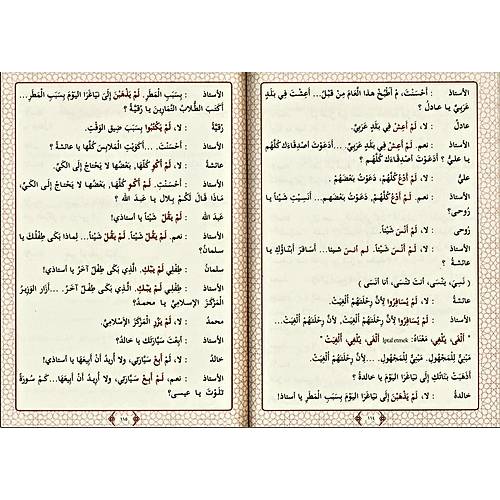 الأستاذ : أَحْسَنْتَ، مْ أَطْبُخْ هذا الْعَامَ مِنْ قَبْلُ... أَعِشْتَ فِي بَلَدٍ
عَرَبِيٍّ يا عادلُ ؟
عادلُ : لا، لَمْ أَعِشْ في بَلَدٍ عَرَبِيٍّ.
الأستاذ : نعم. لَمْ أَعِشْ فِي بَلَدٍ عَرَبِيٍّ. ...أَدَعَوْتَ أَصْدِقَاءَك كُلَّهُم
يا عليُّ ؟ أَدَعَوْتَ أَصْدِقَاءَكَ كُلَّهُم ؟
عليُّ : لا، لَمْ أَدْعُ كُلَّهُمْ، دَعَوْتُ بَعْضَهُمْ.
الأستاذ : نعم. لَمْ أَدْعُ كُلَّهُمْ، دَعَوْتُ بعضهم... أَنَسِيتِ شَيْئاً يا
رُوحى؟
رُوحى : لا، لَمْ أَنْسَ شَيْئاً.
الأستاذ : نعم. لَمْ أَنْسَ شَيْئاً. لم أنس شيئا ...أَسَافَرَ أَبْنَاؤُكِ يا
عائشةُ ؟
( نَسِيَ، يَنْسَى، أنتَ تَنْسَى، أنا أنسَى )
عائشةُ : لا، لَمْ يُسَافِرُوا لِأَنَّ رِحْلَتَهُمْ أُلْغِيَتْ.
الأستاذ : لَمْ يُسَافِرُوا لِأَنَّ رِحْلَتَهُمْ أُلْغِيَتْ. ...لِأَنَّ رِحْلَتَهُمْ أُلْغِيَتْ...
" أَلْغَى، يُلْغِي، مَعْنَاهُ: İptal etmek أَلْغَى، يُلْغِي، أُلْغِيَتْ "
مَبْنِيٌّ لِلْمَجْهُولِ. مَبْنِيٌّ لِلْمَجْهُولِ. ...لِأَنَّ رِحْلَتَهُمْ أُلْغِيَتْ...
أَذَهَبَتْ بَنَاتُكِ إِلَى نَيَاغَرَا الْيَوْمَ يا خالدةُ ؟
خالدةُ : لا، لَمْ يَذْهَبْنَ إِلَى نَيَاغَرَا الْيَوْمَ بِسَبَبِ الْمَطَرِ يا أستاذ!
١١٤
الأستاذ : بِسَبَبِ الْمَطَرِ. لَمْ يَذْهَبْنَ إِلَى نَيَاغَرَا الْيَوْمَ بِسَبَبِ الْمَطَرِ...
أَكَتَبَ الطُّلَّابُ التَّمَارِينَ يا رُقَيَّةُ ؟
رُقَيَّةُ : لا، لَمْ يَكْتُبُوا بِسَبَبِ ضِيقِ الْوَقْتِ.
الأستاذ : أَحْسَنْتِ. ...أَكَوَيْتِ الْمَلَابِسَ كُلَّهَا يا عائشةُ ؟
عائشةُ : لا، لَمْ أَكْوِ كُلَّهَا، بَعْضُهَا لا يَحْتَاجُ إِلَى الْكَيِّ.
الأستاذ : أَحْسَنْتِ. لَمْ أَكْوِ كُلَّهَا، بَعْضُهَا لا يَحْتَاجُ إِلَى الْكَيِّ،
مَاذَا قَالَ لَكُمْ بِلَال يا عَبْدَ الله ؟
عبدَ الله : لَمْ يَقُلْ شَيْئاً يا أستاذي!
الأستاذ : نعم. لَمْ يَقُلْ شَيْئاً. لَمْ يَقُلْ شَيْئاً. ...لِمَاذا بَكَى طِفْلُكَ يا
سلمانُ؟
سلمانُ : طِفْلِي لَمْ يَبْكِ. الَّذِي بَكَى طِفْلٌ آخَرُ يا أستاذي!
الأستاذ : طِفْلِي لَمْ يَبْكِ. الَّذِي بَكَى طِفْلٌ آخَرُ. ...أَزَارَ الْوَزِيرُ
الْمَرْكَزَ الإسلاميَّ يا محمدُ؟
محمدُ : لا، لَمْ يَزُرِ الْمَرْكَزَ الإسْلَامِيَّ.
الأستاذ : أَبِعْتَ سَيَّارَتَكَ يا خالدُ؟
خالدُ : لا، لَمْ أَبِعْ سَيَّارَتِي، ولا أُرِيدُ أَنْ أَبِيعَهَا يا أستاذي!
الأستاذ : نعم، لَمْ أَبِعْ سَيَّارَتِي، ولا أُرِيدُ أَنْ أَبِيعَهَا. ...كَمْ سُورَةً
تَلَوْتَ يا عيسى؟
١١٥